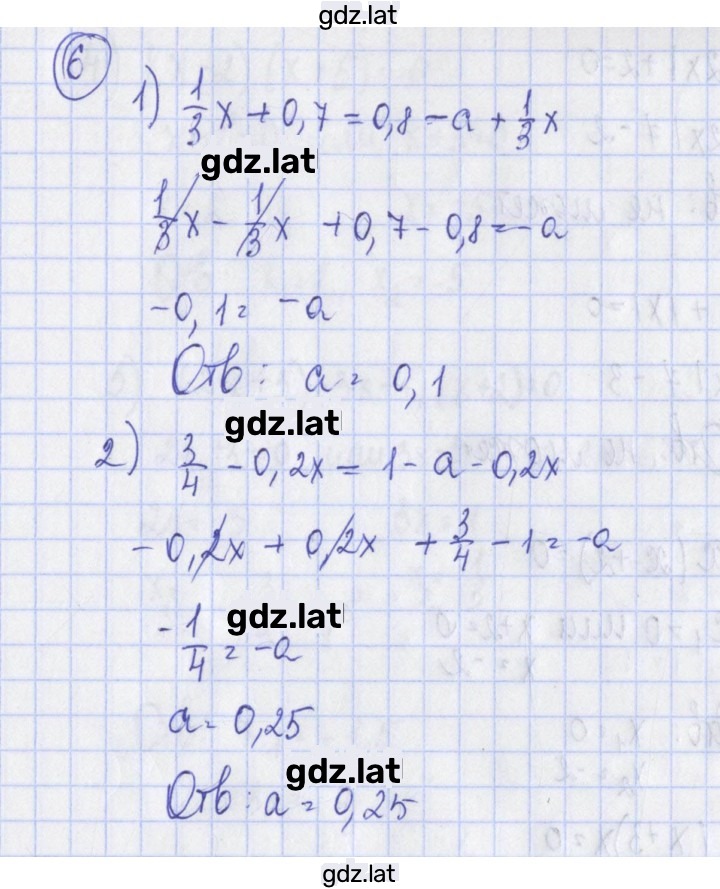 gdz.lat
6
1) 1/3 x + 0,7 = 0,8 - a + 1/3 x
gdz.lat
1/3 x - 1/3 x + 0,7 - 0,8 = - a
-0,1 = -a
Отв: a = 0,1
gdz.lat
2) 3/4 - 0,2x = 1 - a - 0,2x
- 0,2x + 0,2x + 3/4 - 1 = -a
gdz.lat
-1/4 = -a
a = 0,25
gdz.lat
Отв: a = 0,25
gdz.lat